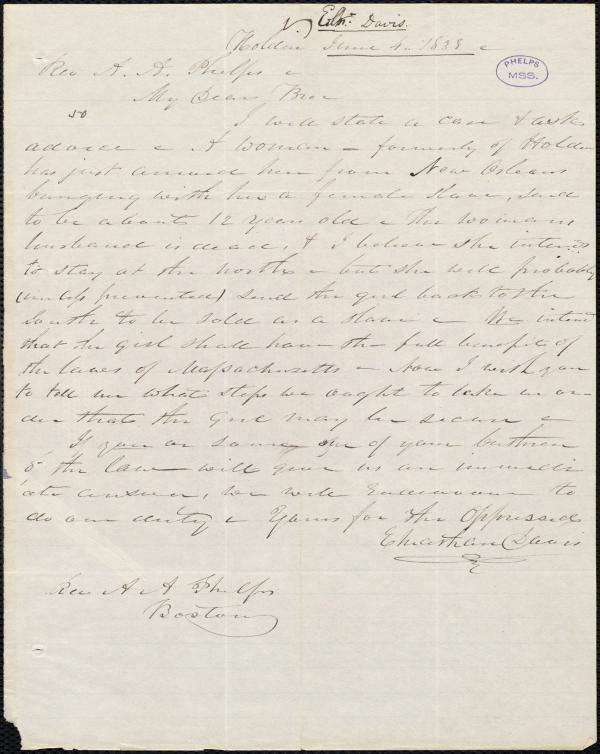 Elnⁿ Davis.
Holden June 4. 1838
PHELPS
MSS.
Rev A. A. Phelps
My Dear Bror
50
I will state a case & ask
advice. A woman - formerly of Holden
has just arrived here from New Orleans
bringing with her a female slave, said
to be about 12 years old. The womans
husband is dead, & I believe she intends
to stay at the north - but she will probably
(unless prevented) send the girl back to the
South to be sold as a slave. We intend
that the girl shall have the full benefit of
the laws of Massachusetts. Now I wish you
to tell me what steps we ought to take in or-
der that the girl may be secure.
If you or some one of your brethren
of the law will give us an immedi
ate answer, we will endeavour to
do our duty. Yours for the Oppressed
Elnathan Davis
Rev A A Phelps
Boston